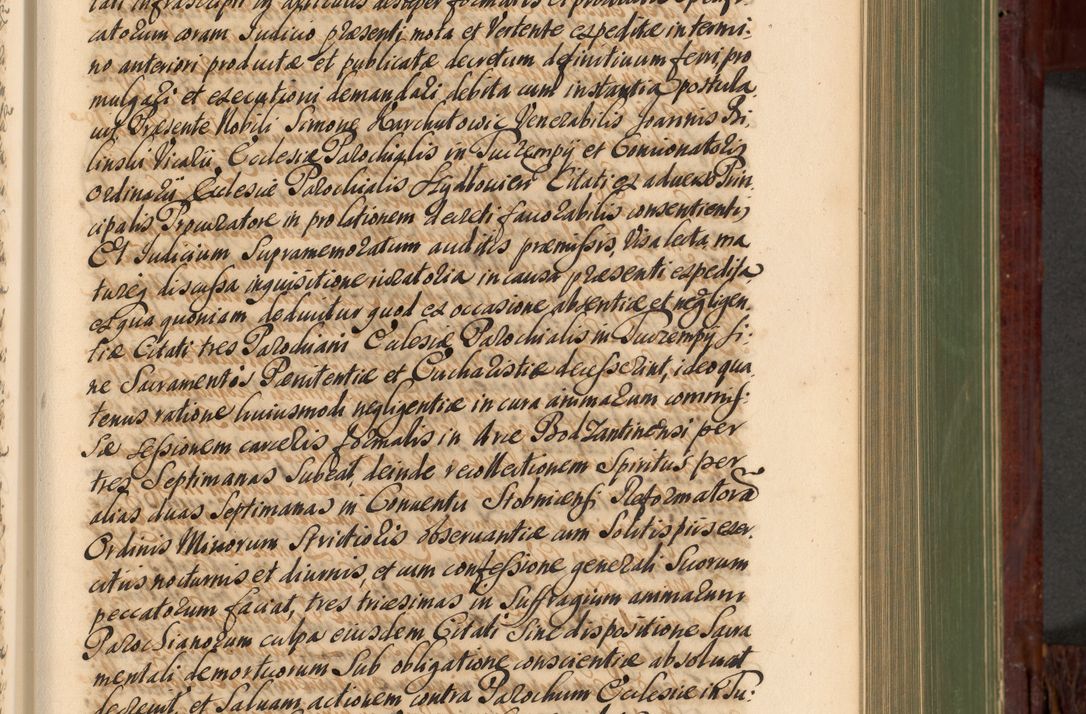 catorum coram Judicio præsenti mota et Vertente expeditæ in termi:
no anteriori productæ et publicatæ decretum definitiuum ferri, pro
mulgari et executioni demandari debita cum instantia postula
uit Præsente Nobili Simone Karchutowic Venerabilis Joannis Bi:
linski Vicarii Ecclesiæ Parochialis in Tuczempÿ et Concionatoris
ordinarii Ecclesiæ Parochialis Citati ex aduerso Prin
cipalis Procuratore in prolationem decreti fauorabilis consentientis
Et Judicium Supramemoratum auditis præmissis, Visa lecta, ma
tureq discussa inquisitione iuratoria in causa præsenti expedita,
ex qua quoniam deducitur quod ex occasione absentiæ et negligen:
tiæ Citati tres Parochiani Ecclesiæ Parochialis in Tuczempÿ si:
ne Sacramentis Pœnitentiæ et Eucharistiæ decesserint, ideo qua
tenus ratione huiusmodi negligentiæ in cura animarum commis:
sæ sessionem carceris formalis in Arce Bodzantinensi per
tres Septimanas Subeat, deinde recollectionem Spiritus per
alias duas Septimanas in Conuentu Stobnicensi Reformatorũ
Ordinis Minorum Strictioris obseruantiæ cum Solitis piis exer:
citiis nocturnis et diurnis, et cum confessione generali Suorum
peccatorum faciat, tres tricesimas in Suffragium animarum
Parochianorum culpa eiusdem Citati Sine dispositione Sacra
mentali demortuorum Sub obligatione conscientiæ absoluat
decreuit, et Saluam actionem contra Parochum Ecclesiæ in Tu: